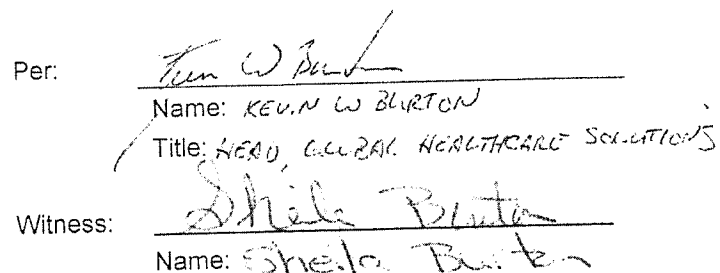 Per: Kevin W Burton
Name: KEVIN W BURTON
Title: HEAD, GLOBAL HEALTHCARE SOLUTIONS
Witness: Sheila Burton
Name: Sheila Burton